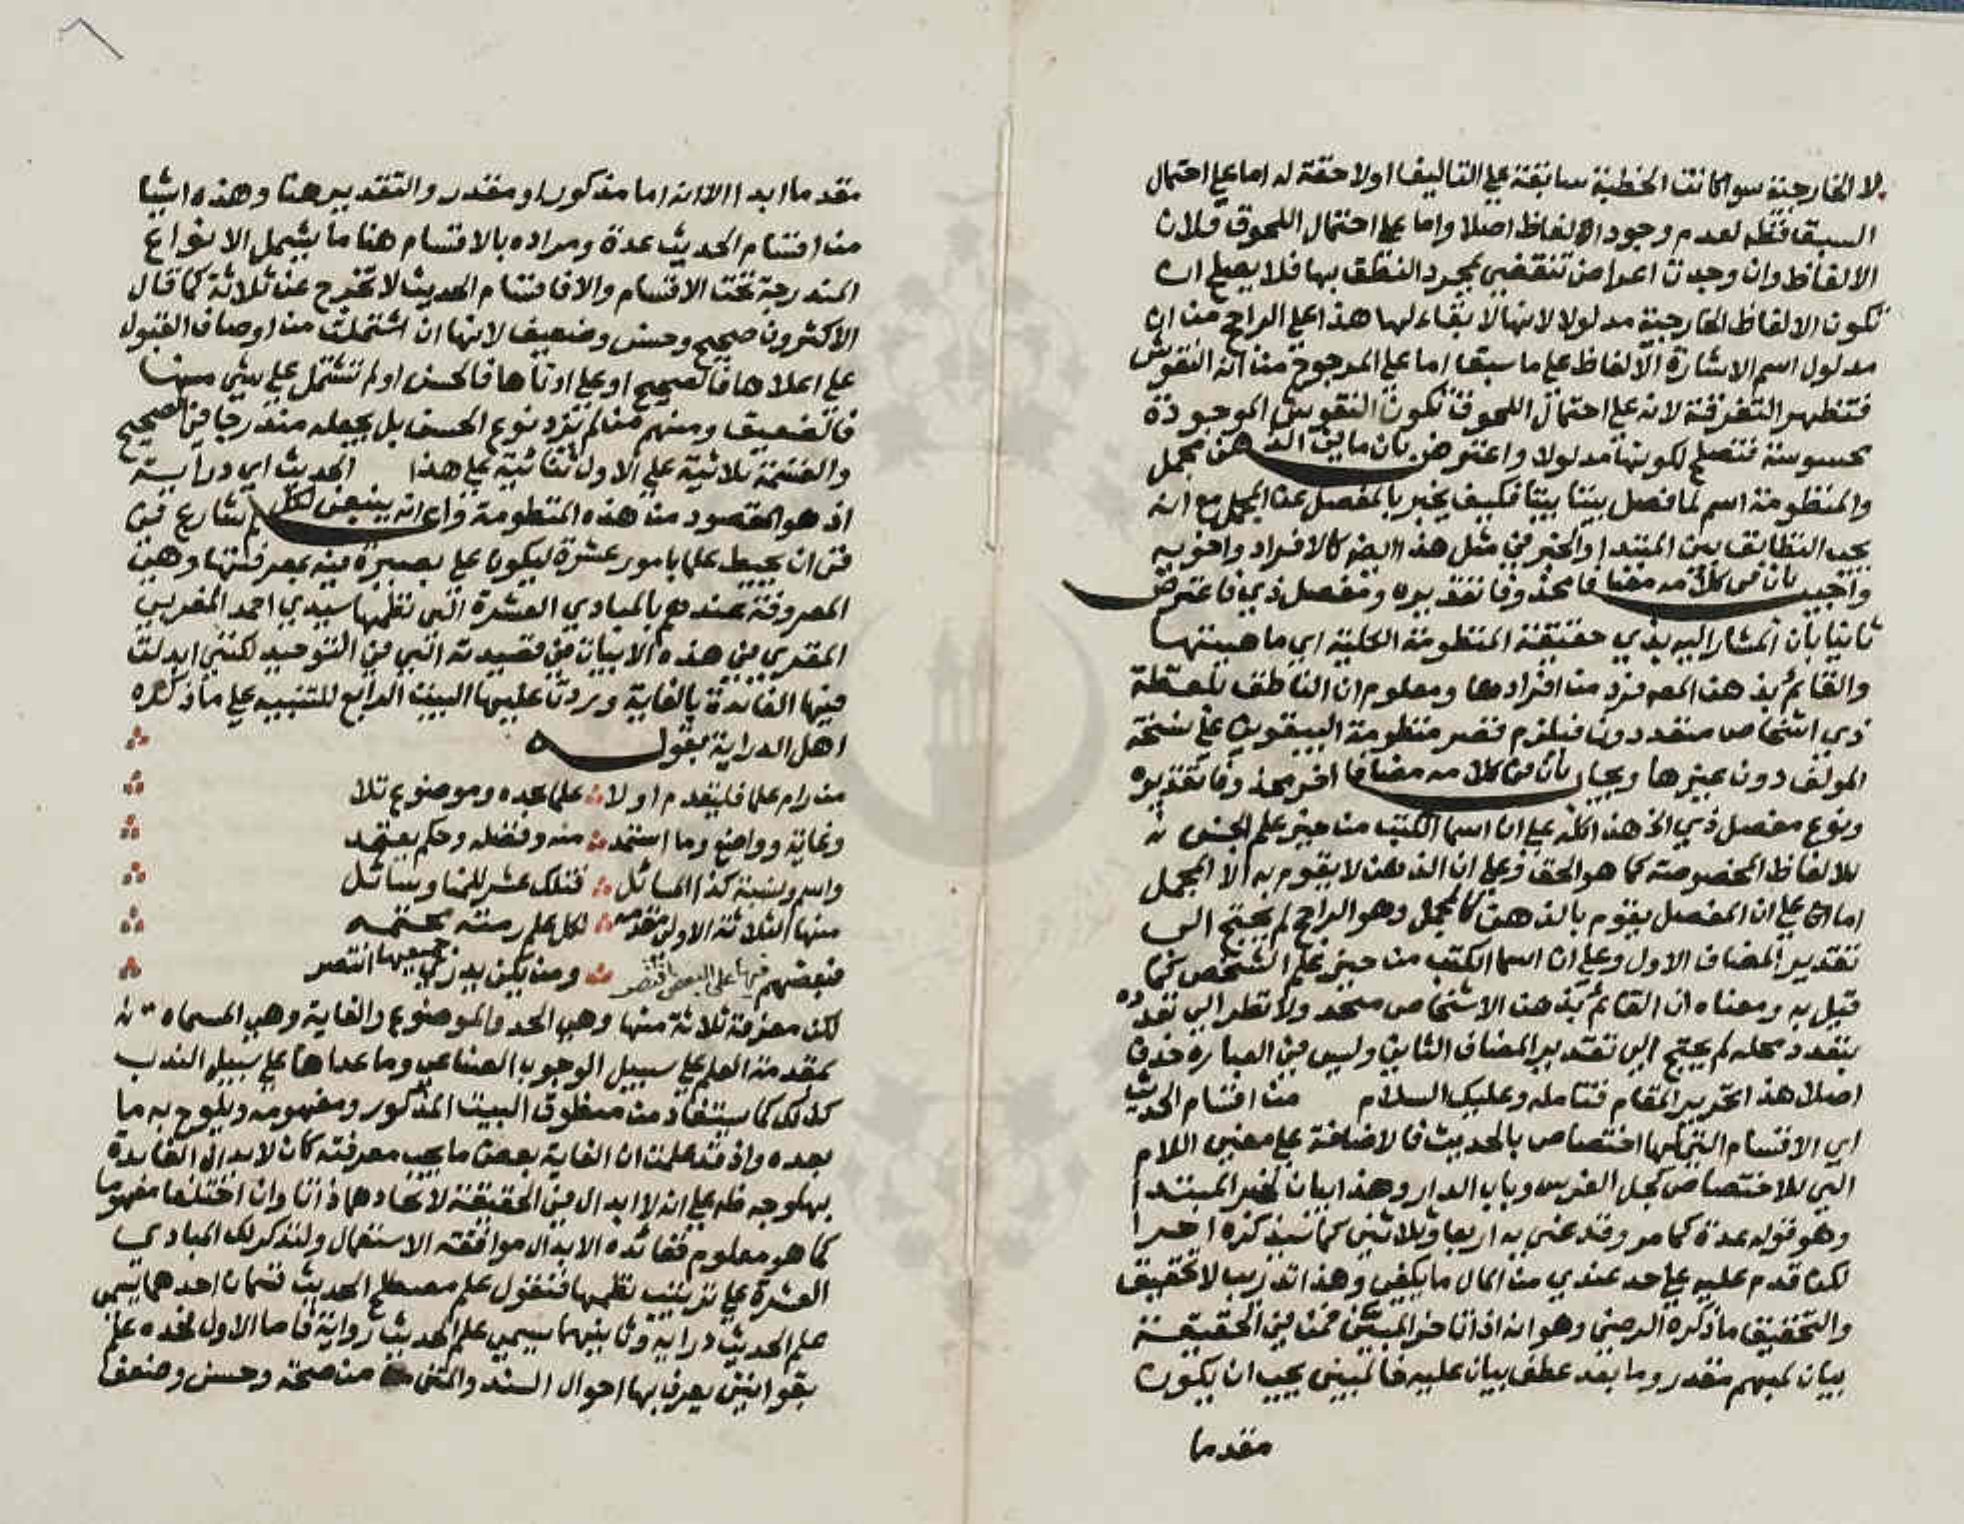 لا الخارجية سوا كانت الخطبة سابقة علي التاليف او لاحقة له اما علي احتمال
السبق فظه لعدم وجود الالفاظ اصلا واما علي احتمال اللحوق فلان
الالفاظ وان وجدت اعراض تنقضي بمجرد النطق بها فلا يصلح ان
تكون الالفاظ الخارجية مدلولا لانها لا بقاء لها هذا علي الراجح من ان
مدلول اسم الاشارة الالفاظ علي ما سبق اما علي المرجوح من انه النقوش
فتظهر التفرقة لانه علي احتمال اللحوق تكون النقوش الموجودة
محسوسة فتصلح لكونها مدلولا واعترض بان ما في الذهن مجمل
والمنظومة اسم لما فصل بيتا بيتا فكيف يخبر بالمفصل عن المجمل مع انه
يجب التطابق بين المبتدا والخبر في مثل هذا البض كالافراد واخويه
واجيب بان في كلامه مضافا محذوفا تقديره ومفصل ذي فاعترض
ثانيا بان المشار اليه بذي حقيقة المنظومة الكلية اي ماهيتها
والقائم بذهن المص فرد من افرادها ومعلوم ان الناطق بلفظة
ذي اشخاص متعددون فيلزم قصر منظومة البيقوني علي نسخة
المولف دون غيرها ويجاب بان في كلامه مضافا اخر محذوفا تقديره
ونوع مفصل ذي الخ هذا كله علي ان اسما الكتب من حيز علم الجنس
للالفاظ المخصوصة كما هو الحق وعلي ان الذهن لا يقوم به الا المجمل
اما علي ان المفصل يقوم بالذهن كالمجمل وهو الراجح لم يحتج الي
تقدير المضاف الاول وعلي ان اسما الكتب من حيز علم الشخص كما
قيل به ومعناه ان القائم بذهن الاشخاص متحد ولا نظر الي تعدده
بتعدد محله لم يحتج الي تقدير المضاف الثاني وليس في العبارة حذف
اصلا هذا تحرير المقام فتامله وعليك السلام من اقسام الحديث
اي الاقسام التي لها اختصاص بالحديث فالاضافة علي معني اللام
التي للاختصاص كجل الفرس وباب الدار وهذا بيان لخبر المبتدا
وهو قوله عدة كما مر وقد عني به اربعا وثلاثين كما سيذكره اخرا
لكن قدم عليه علي حد عندي من المال ما يكفي وهذا تدريب لا تحقيق
والتحقيق ما ذكره الرضي وهو انه اذا تاخر المبين فمن في الحقيقة
بيان لمبهم مقدر وما بعد عطف بيان عليه فالمبين يجب ان يكون
مقدما
مقدما ابدا الا انه اما مذكور او مقدر والتقدير هنا وهذه اشيا
من اقسام الحديث عدة ومراده بالاقسام هنا ما يشمل الانواع
المندرجة تحت الاقسام والا فاقسام الحديث لا تخرج عن ثلاثة كما قال
الاكثرون صحيح وحسن وضعيف لانها ان اشتملت من اوصاف القبول
علي اعلاها فالصحيح او علي ادناها فالحسن او لم تشتمل علي شي منها
فالضعيف ومنهم من لم يفرد نوع الحسن بل يجعله مندرجا في الصحيح
والقسمة ثلاثية علي الاول ثنائية علي هذا الحديث اي دراية
اذ هو المقصود من هذه المنظومة واعلم انه ينبغي لكل شارع في
فن ان يحيط علما بامور عشرة ليكون علي بصيرة فيه بمعرفتها وهي
المعروفة عندهم بالمبادي العشرة التي نظمها سيدي احمد المغربي
المقري في هذه الابيات في قصيدته التي في التوحيد لكنني ابدلت
فيها الفائدة بالغاية وزدت عليها البيت الرابع للتنبيه علي ما ذكره
اهل الدراية بقوله
من رام علما فليقدم اولا علما بحده وموضوع تلا
وغاية وواضع وما استمد منه وفضله وحكم يعتمد
واسم ونسبة كذا المسائل فتلك عشر للمنا وسائل
منها الثلاثة الاولي مقدمه لكل علم رمته محتمه
فبعضهم فيها علي البعض اقتصر ومن يكن يدري جميعها انتصر
لكن معرفة ثلاثة منها وهي الحد والموضوع والغاية وهي المسماة
بمقدمة العلم علي سبيل الوجوب الصناعي وما عداها علي سبيل الندب
كذلك كما يستفاد من منطوق البيت المذكور ومفهومه ويلوح به ما
بعده واذ قد علمت ان الغاية بعض ما يجب معرفته كان لابدال الفائدة
بها وجه ظه علي انه لا ابدال في الحقيقة لاتحادهما ذاتا وان اختلفا مفهوما
كما هو معلوم ففائدة الابدال موافقة الاستعمال ولنذكر لك المبادي
العشرة علي ترتيب نظمها فنقول علم مصطلح الحديث قسمان احدهما يسمي
علم الحديث دراية وثانيهما يسمي علم الحديث رواية فاما الاول فحده علم
بقوانين يعرف بها احوال السند والمتن من صحة وحسن وضعف